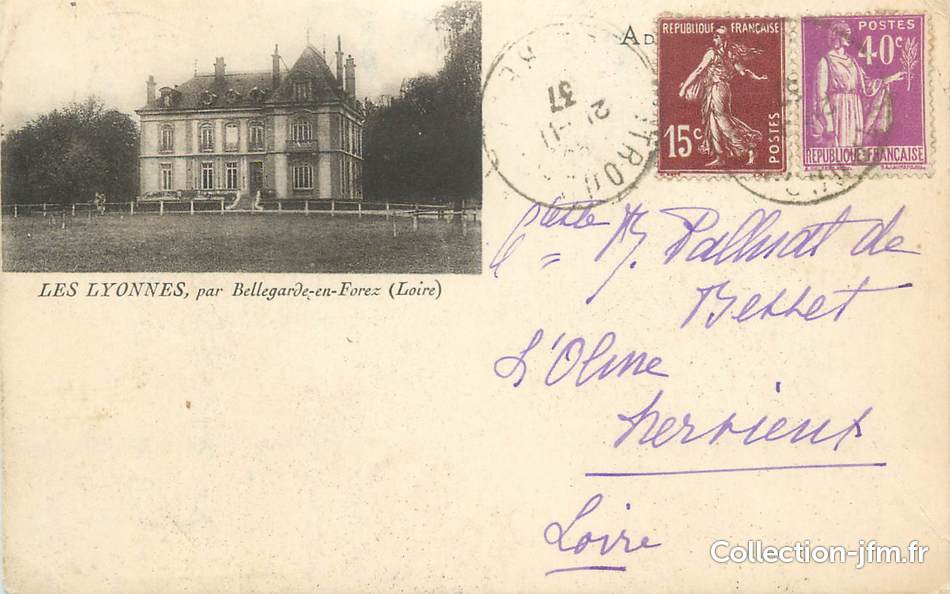 LES LYONNES, par Bellegarde-en-Forez (Loire)
AD
REPUBLIQUE FRANÇAISE
15c
POSTES
POSTES
40c
REPUBLIQUE FRANÇAISE
37
Ctesse M. Palluat de
Besset
L'Olme
Nervieux
Loire
Collection-jfm.fr